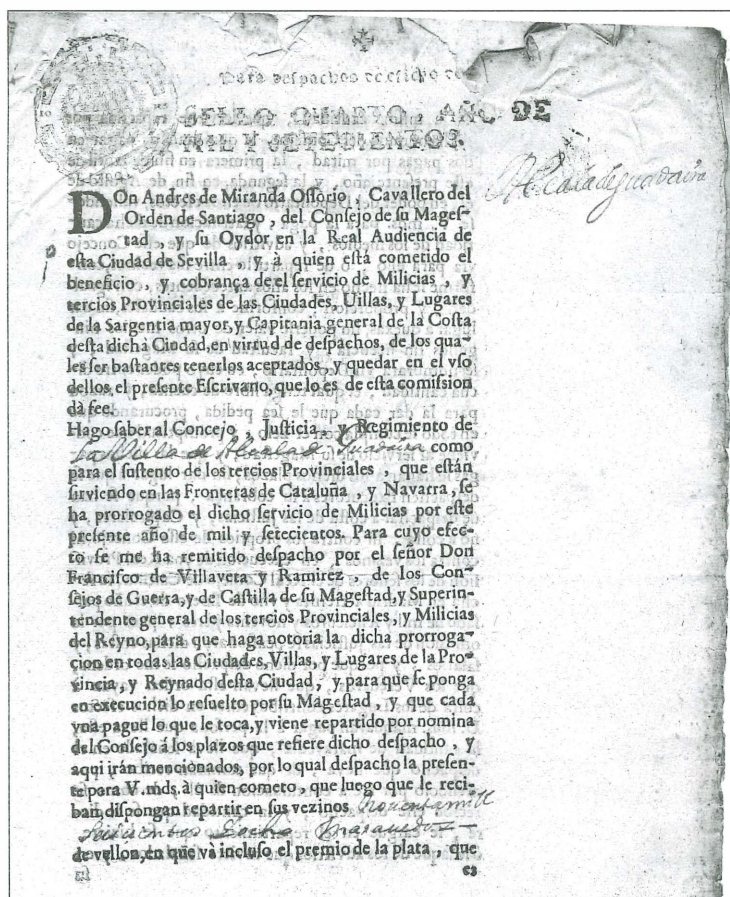 Para despachos de oficio
SELLO QUARTO, AÑO DE
MIL Y SETECIENTOS.
Alcala de guadaira
DOn Andres de Miranda Ossorio, Cavallero del
Orden de Santiago, del Consejo de su Mages-
tad, y su Oydor en la Real Audiencia de
esta Ciudad de Sevilla, y à quien está cometido el
beneficio, y cobrança de el servicio de Milicias, y
tercios Provinciales de las Ciudades, Uillas, y Lugares
de la Sargentia mayor, y Capitania general de la Costa
desta dicha Ciudad, en virtud de despachos, de los qua-
les ser bastantes tenerlos aceptados, y quedar en el vso
dellos, el presente Escrivano, que lo es de esta comission
dà fee.
Hago saber al Concejo, Justicia, y Regimiento de
La Villa de Alcala de Guadaira como
para el sustento de los tercios Provinciales, que están
sirviendo en las Fronteras de Cataluña, y Navarra, se
ha prorrogado el dicho servicio de Milicias por este
presente año de mil y setecientos. Para cuyo efec-
to se me ha remitido despacho por el señor Don
Francisco de Villaveta y Ramirez, de los Con-
sejos de Guerra, y de Castilla de su Magestad, y Superin-
tendente general de los tercios Provinciales, y Milicias
del Reyno, para que haga notoria la dicha prorroga-
cion en todas las Ciudades, Villas, y Lugares de la Pro-
vincia, y Reynado desta Ciudad, y para que se ponga
en execucion lo resuelto por su Magestad, y que cada
vna pague lo que le toca, y viene repartido por nomina
del Consejo á los plazos que refiere dicho despacho, y
aqui irán mencionados, por lo qual despacho la presen-
te para V.mds. à quien cometo, que luego que le reci-
ban, dispongan repartir en sus vezinos Noventa mill
maravedis
de vellon, en que và incluso el premio de la plata, que